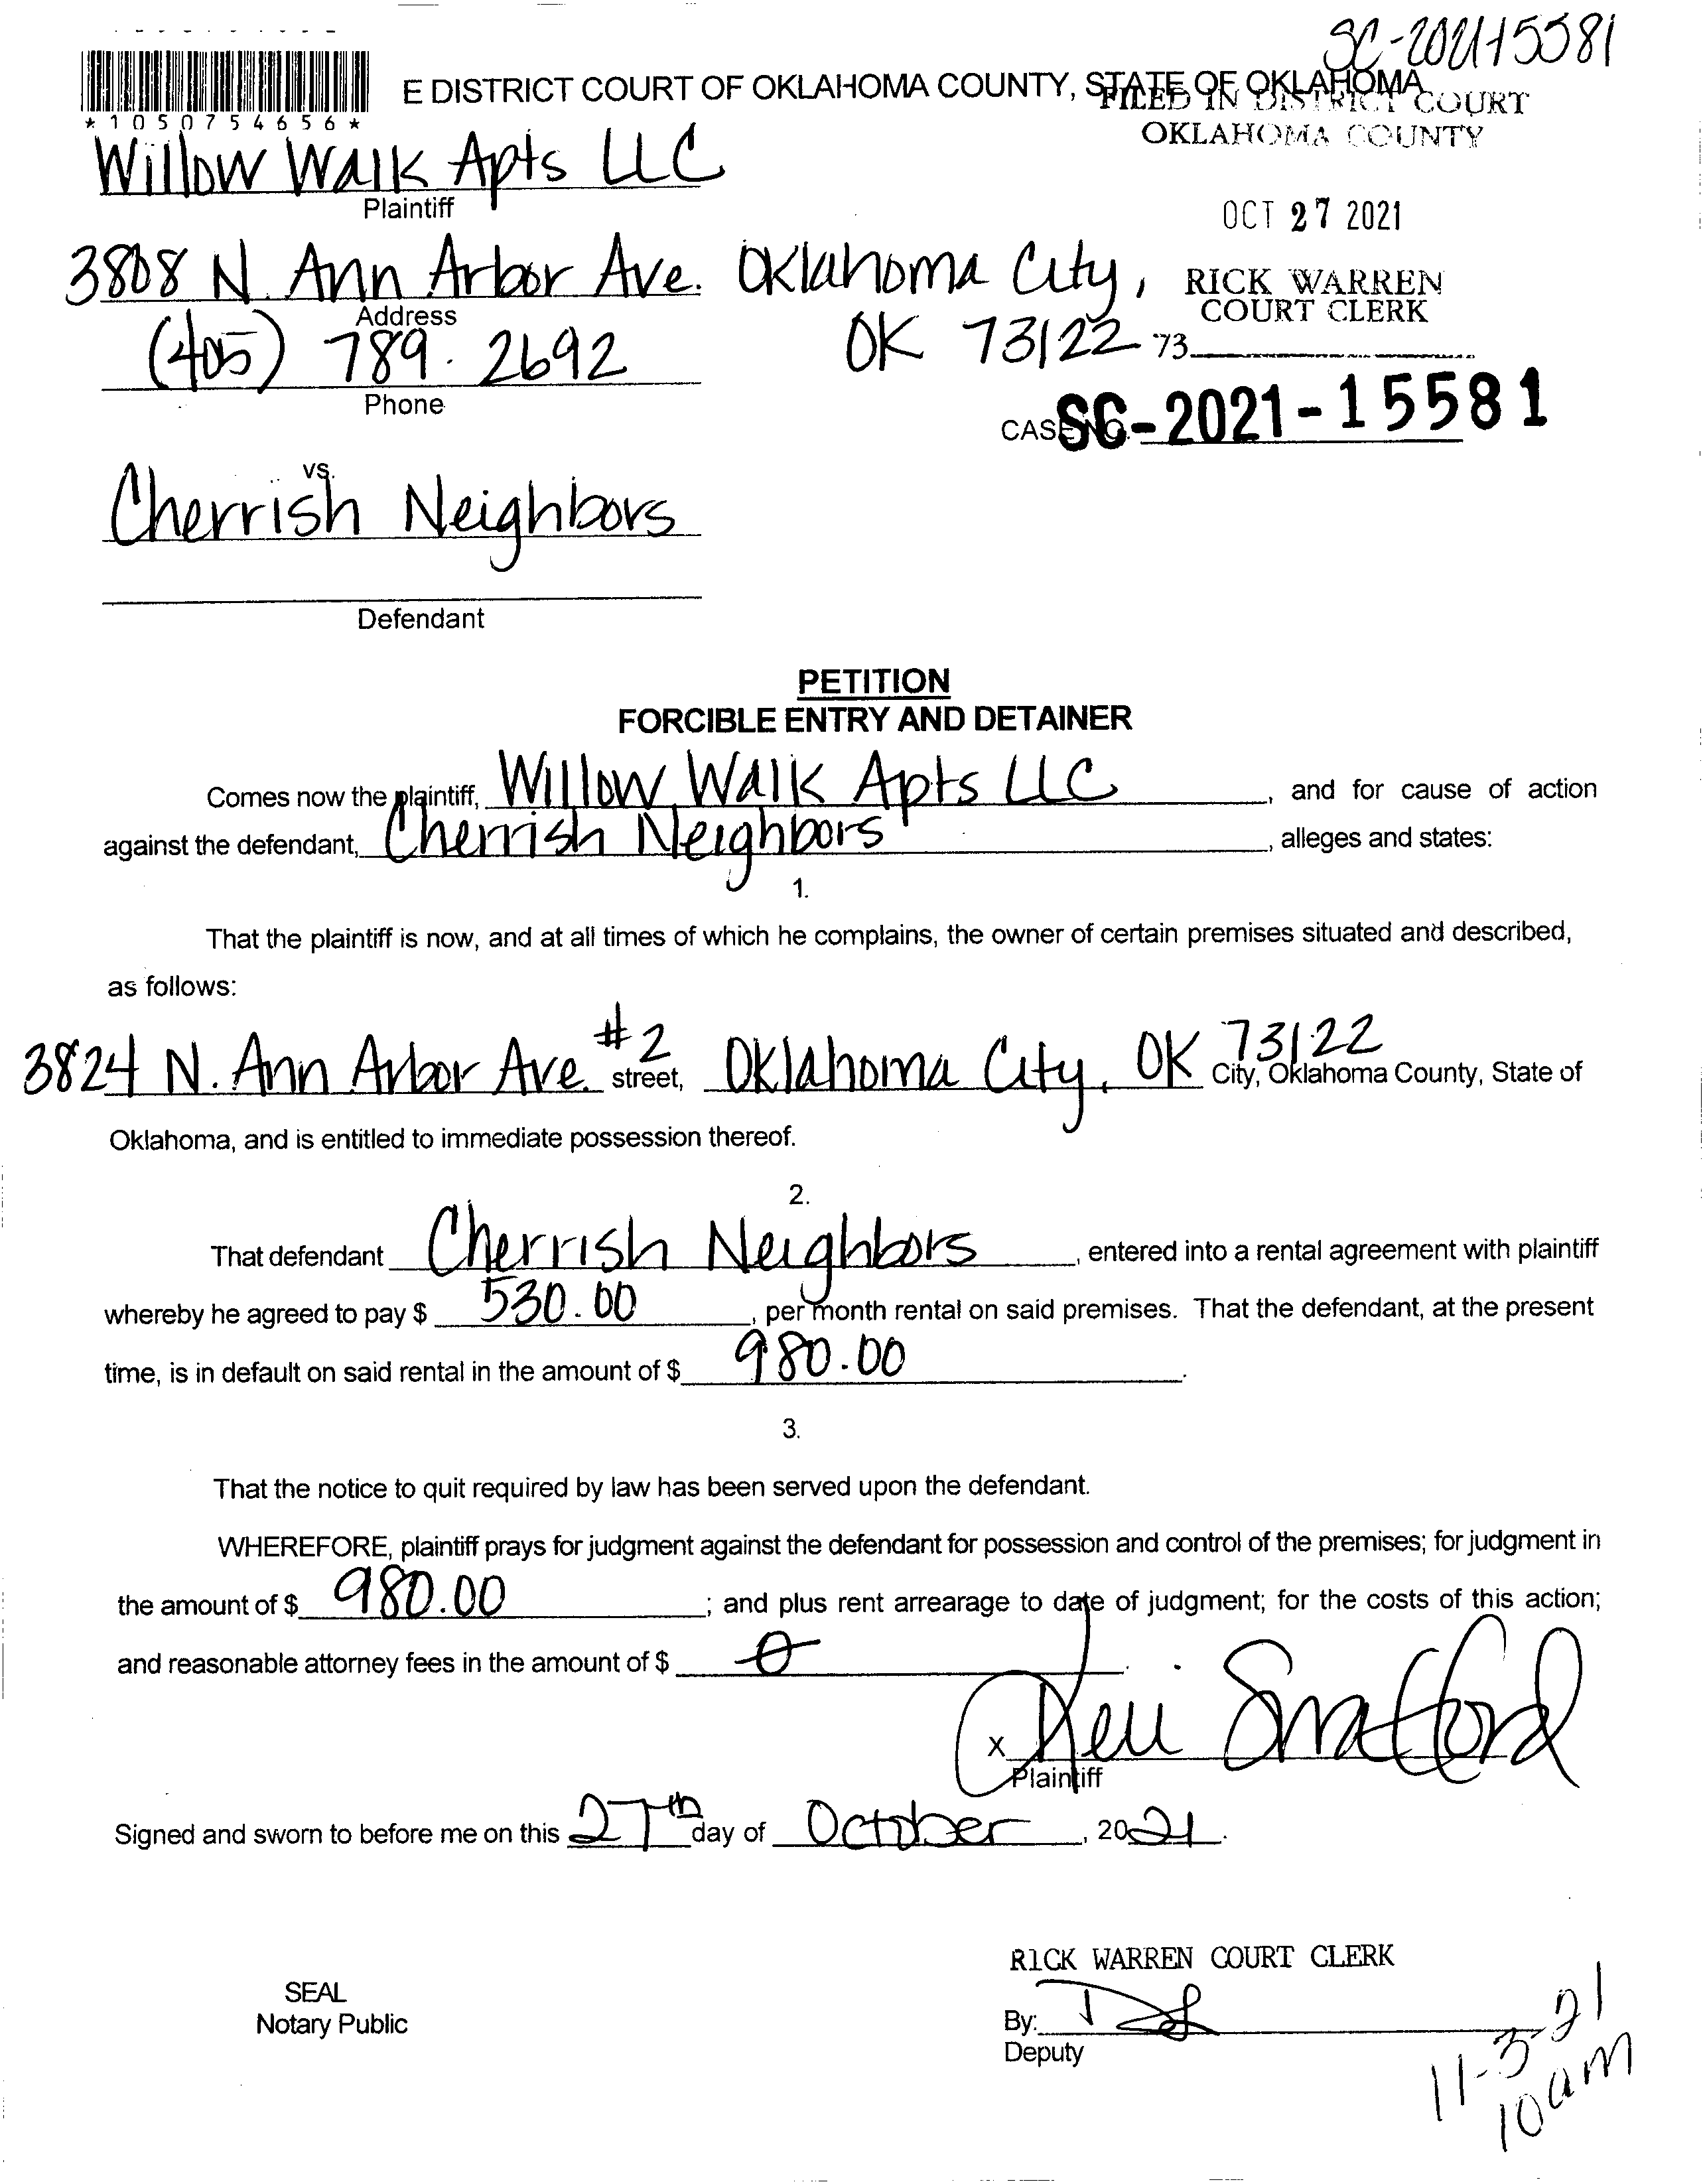 SC-2021-15581
E DISTRICT COURT OF OKLAHOMA COUNTY, STATE OF OKLAHOMA
FILED IN DISTRICT COURT
OKLAHOMA COUNTY
*1050754656*
Willow Walk Apts LLC
Plaintiff
OCT 27 2021
3808 N. Ann Arbor Ave. Oklahoma City,
RICK WARREN
COURT CLERK
Address
(405) 789.2692
OK 73122
73
Phone
CASE NO. SC-2021-15581
vs.
Cherrish Neighbors
Defendant
PETITION
FORCIBLE ENTRY AND DETAINER
Comes now the plaintiff, Willow Walk Apts LLC, and for cause of action
against the defendant, Cherrish Neighbors, alleges and states:
1.
That the plaintiff is now, and at all times of which he complains, the owner of certain premises situated and described,
as follows:
3824 N. Ann Arbor Ave. #2 street, Oklahoma City, OK 73122 City, Oklahoma County, State of
Oklahoma, and is entitled to immediate possession thereof.
2.
That defendant Cherrish Neighbors, entered into a rental agreement with plaintiff
whereby he agreed to pay $ 530.00, per month rental on said premises. That the defendant, at the present
time, is in default on said rental in the amount of $ 980.00.
3.
That the notice to quit required by law has been served upon the defendant.
WHEREFORE, plaintiff prays for judgment against the defendant for possession and control of the premises; for judgment in
the amount of $ 980.00; and plus rent arrearage to date of judgment; for the costs of this action;
and reasonable attorney fees in the amount of $ 0.
x
Plaintiff
Signed and sworn to before me on this 27th day of October, 2021.
RICK WARREN COURT CLERK
SEAL
Notary Public
By:
Deputy
11-3-21
10am